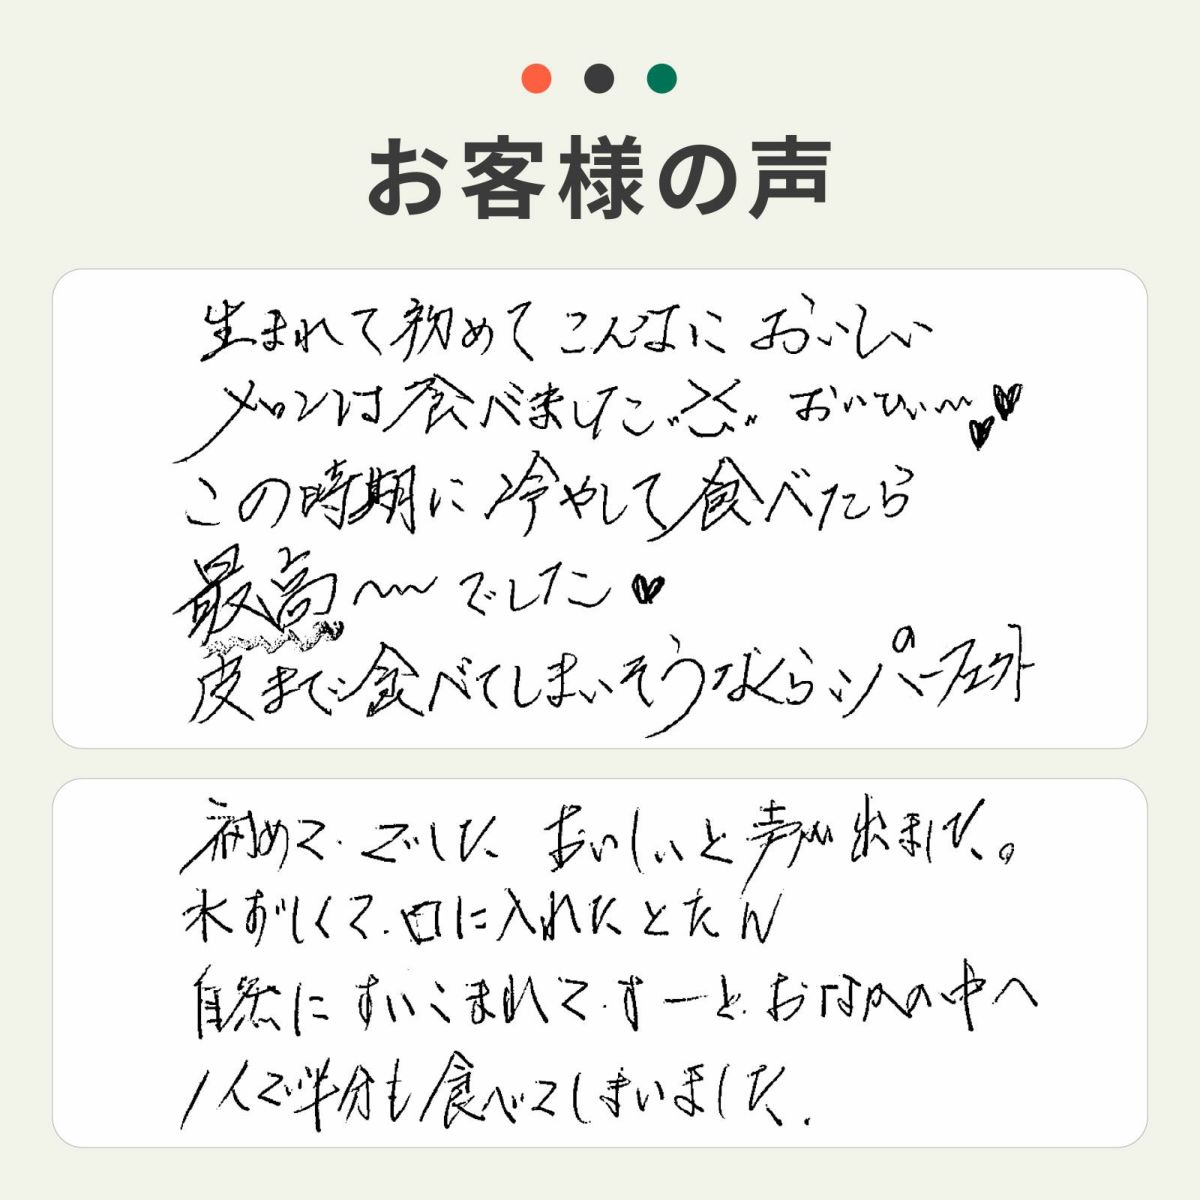 お客様の声
生まれて初めてこんなにおいしい
メロンは食べました おいひぃ〜♥♥
この時期に冷やして食べたら
最高〜でした♥
皮まで食べてしまいそうなくらいパーフェクト
初めてでした おいしいと声が出ました。
水ずしくて、口に入れたとたん
自然にすいこまれて、すーと、おなかの中へ
1人で半分も食べてしまいました.